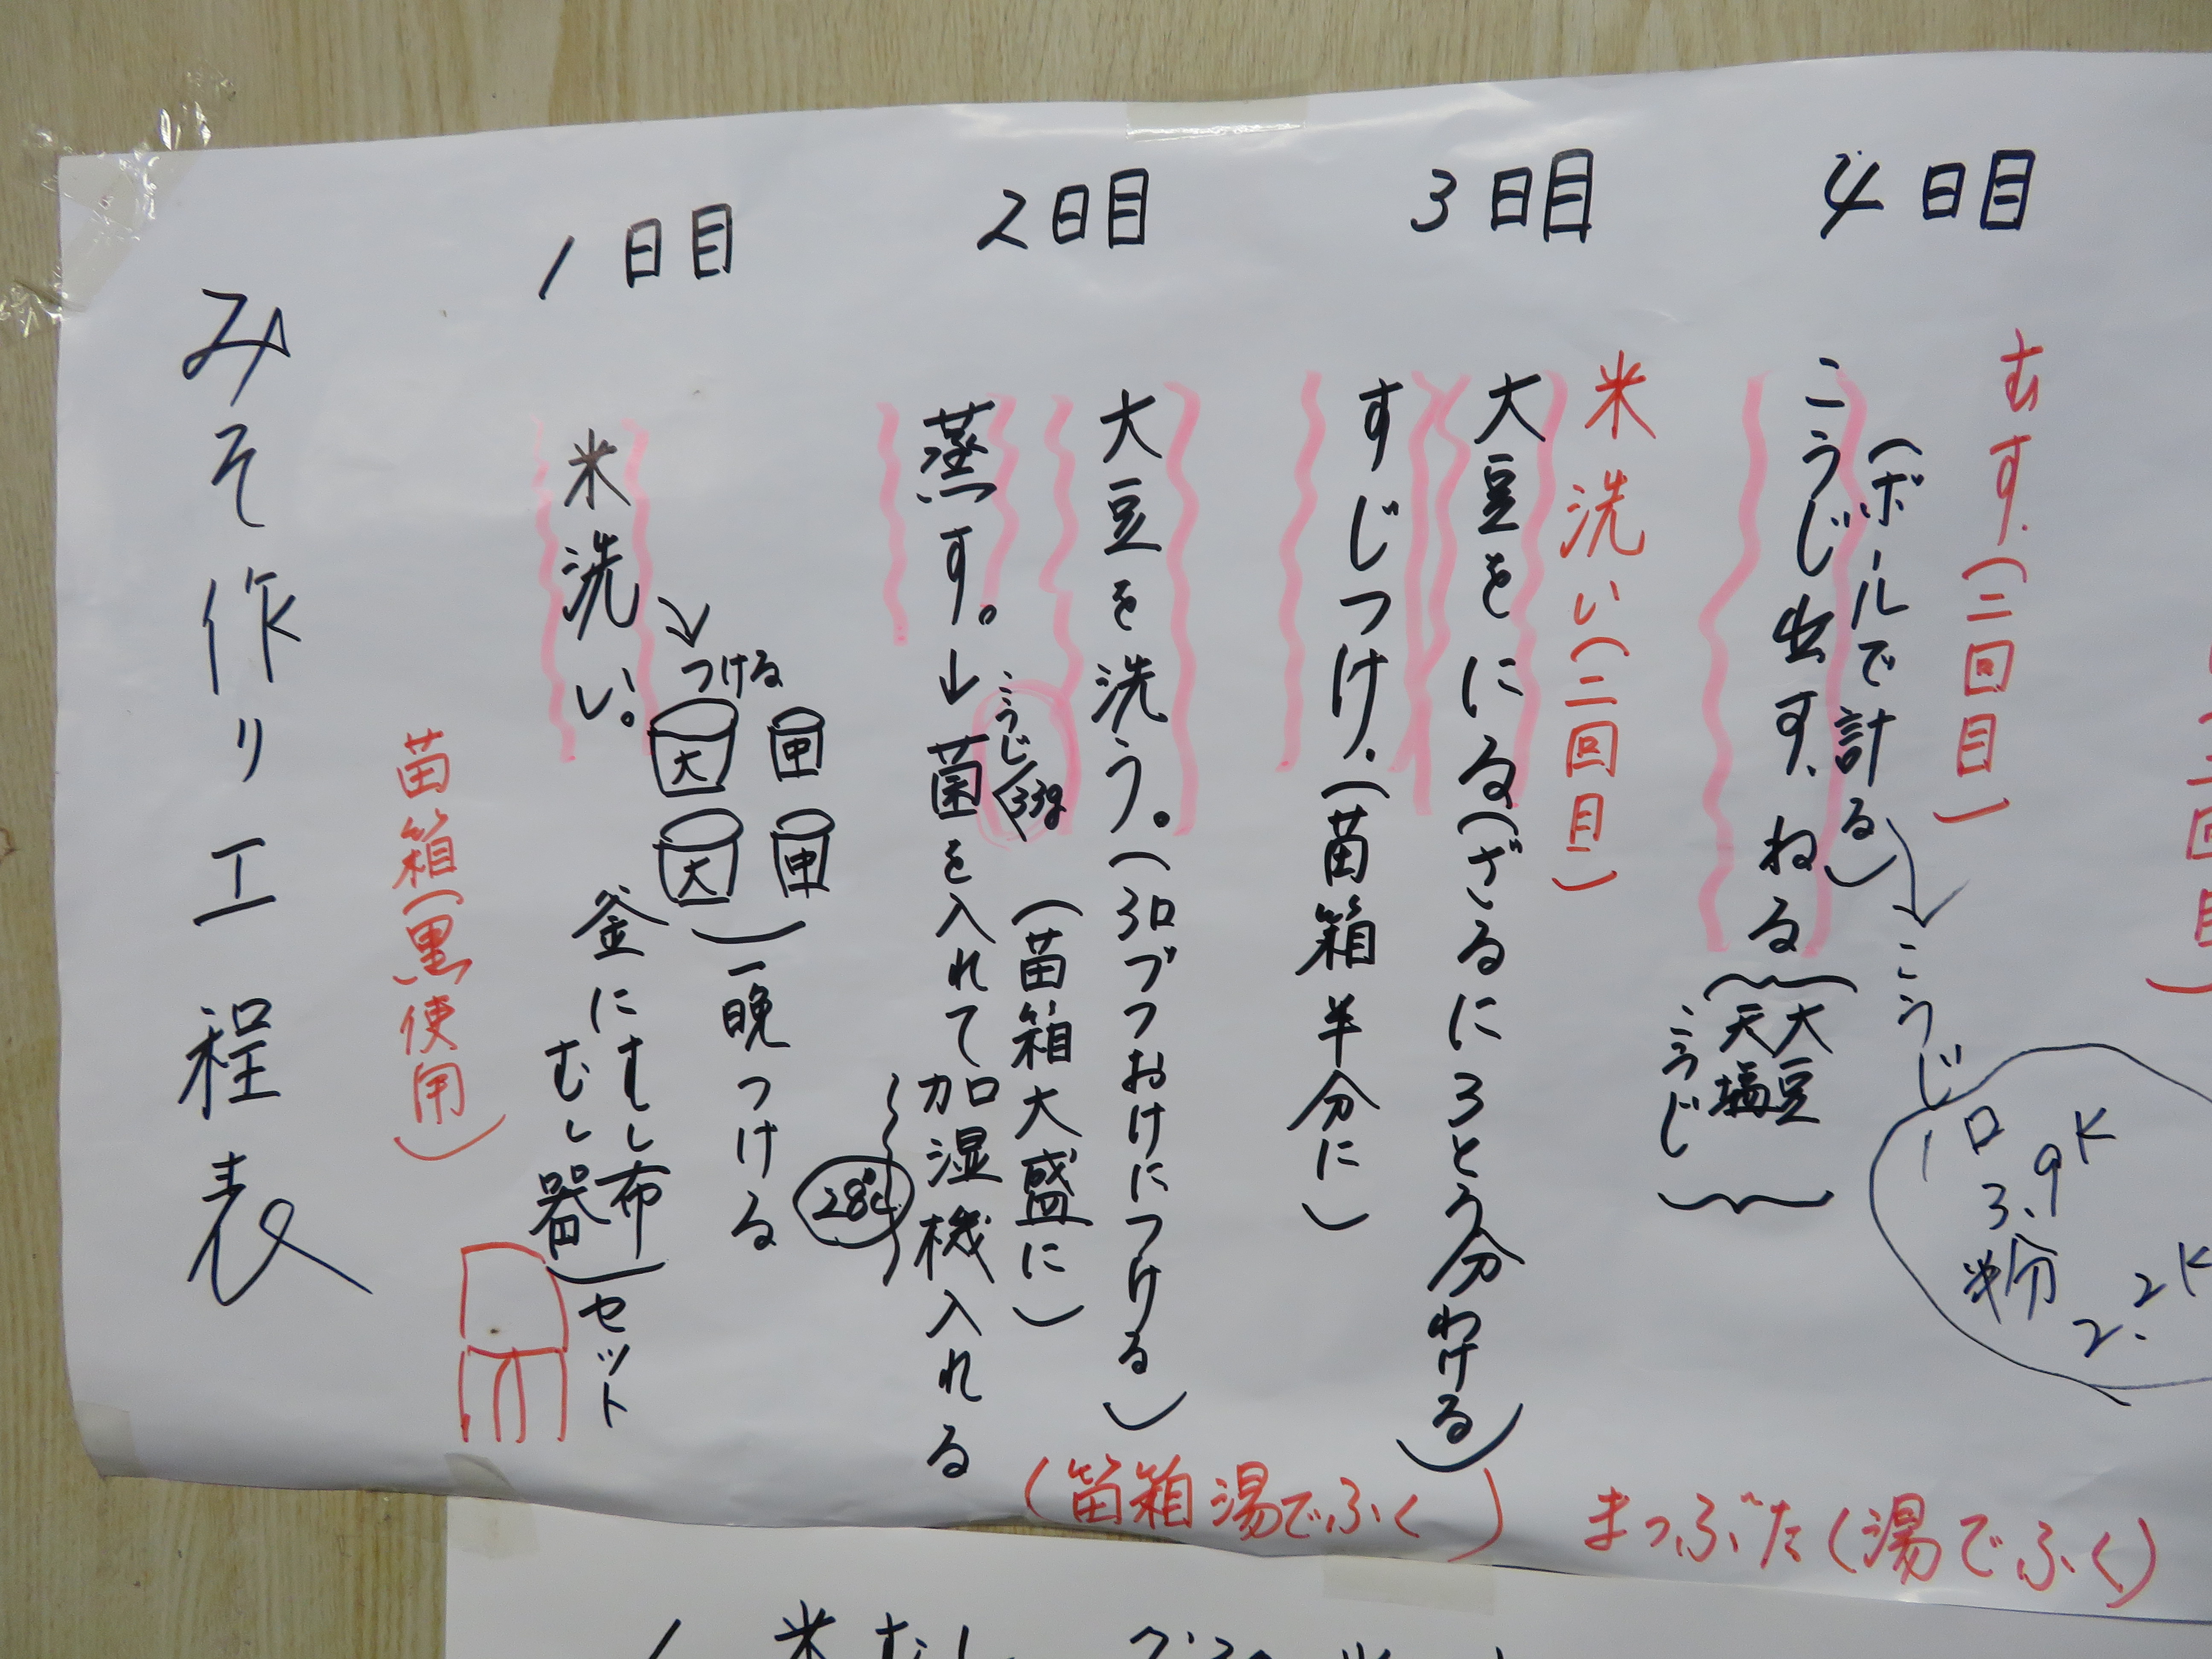 みそ作り工程表
1日目
米洗い。
↓
つける
大
中
大
中
一晩つける
釜にむし布
むし器
セット
苗箱(黒使用)
2日目
大豆を洗う。(3ロづつおけにつける)
(苗箱大盛に)
蒸す。↓菌を入れて加湿機入れる
こうじ
28℃
(苗箱湯でふく)
3日目
米洗い(二回目)
大豆をにる(ざるに3とう分わける)
すじつけ.(苗箱半分に)
4日目
むす.(二回目)
(ボールで計る)
こうじ出す.ねる
大豆
天塩
こうじ
こうじ
1ロ
3.9K
米分
2.2K
まっぶた(湯でふく)